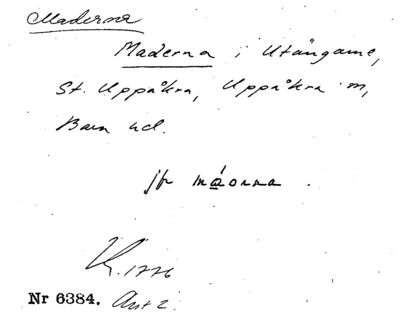 Maderna
Maderna i Utängarne,
St. Uppåkra, Uppåkra m,
Bara hd.
jfr
K. 1776
Nr 6384. Ant 2.